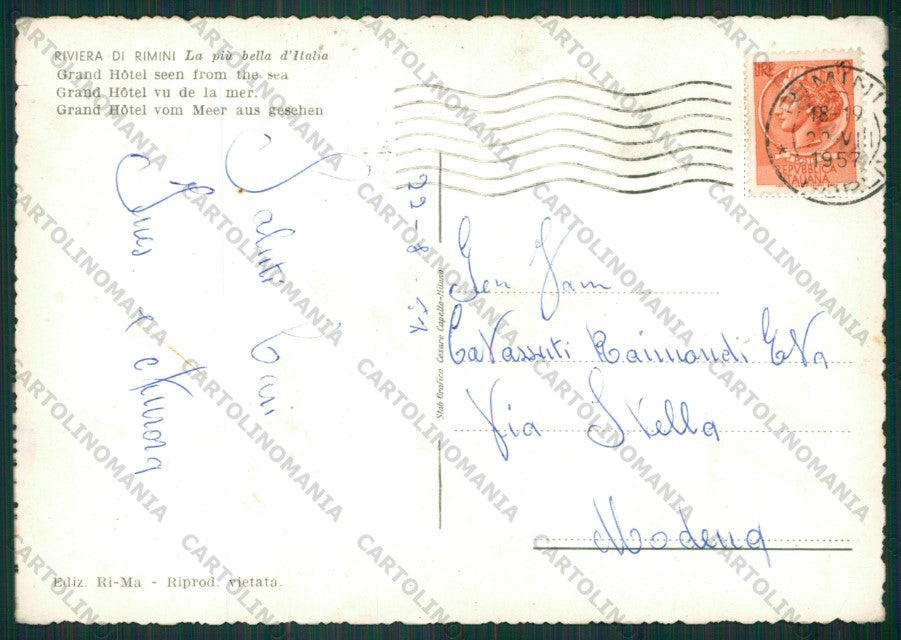 RIVIERA DI RIMINI La più bella d'Italia
Grand Hôtel seen from the sea
Grand Hôtel vu de la mer.
Grand Hôtel vom Meer aus gesehen
Saluti Cari
Ines e Aurora
22-8-57
Stab Grafico Cesare Capello-Milano
Gen Fam
Cavassuti Raimondi Eva
Via Stella
Modena
Ediz. Ri-Ma - Riprod. vietata.
LIRE
REPVBBLICA
ITALIANA
RIMINI
18-19
22 VIII
1957
CARTOLINOMANIA